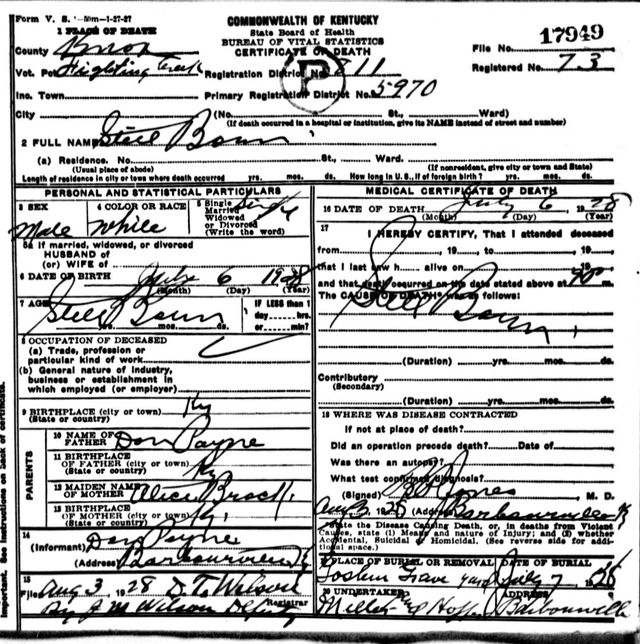 Form V. S. 1-50m-1-27-27
COMMONWEALTH OF KENTUCKY
State Board of Health
BUREAU OF VITAL STATISTICS
CERTIFICATE OF DEATH
1 PLACE OF DEATH
County Knox
File No. 17949
Vot. Pct. Fighting Creek Registration District No. 811
Registered No. 73
Inc. Town Primary Registration District No. 5970
P
City (No. St., Ward)
(If death occurred in a hospital or institution, give its NAME instead of street and number)
2 FULL NAME Steel Born
(a) Residence. No. St., Ward.
(Usual place of abode) (If nonresident, give city or town and State)
Length of residence in city or town where death occurred yrs. mos. ds. How long in U.S., if of foreign birth? yrs. mos. ds.
PERSONAL AND STATISTICAL PARTICULARS
3 SEX
Male
4 COLOR OR RACE
White
5 Single
Married
Widowed
or Divorced
(Write the word)
Single
5a If married, widowed, or divorced
HUSBAND of
(or) WIFE of
6 DATE OF BIRTH 6 1928
(Month) (Day) (Year)
7 AGE Steel Born
yrs. mos. ds.
IF LESS than 1
day hrs.
or min?
8 OCCUPATION OF DECEASED
(a) Trade, profession or
particular kind of work
(b) General nature of industry,
business or establishment in
which employed (or employer)
9 BIRTHPLACE (city or town) Ky
(State or country)
PARENTS
10 NAME OF
FATHER Don Payne
11 BIRTHPLACE
OF FATHER (city or town) Ky
(State or country)
12 MAIDEN NAME
OF MOTHER Alice Brock
13 BIRTHPLACE
OF MOTHER (city or town) Ky
(State or country)
14
(Informant) Don Payne
(Address) Barbourville Ky
15
Filed Aug 3 1928 D. T. Wilson
By J M Wilson Deputy Registrar
MEDICAL CERTIFICATE OF DEATH
16 DATE OF DEATH July 6 1928
(Month) (Day) (Year)
17
I HEREBY CERTIFY, That I attended deceased
from 19 to 19
that I last saw h alive on 19
and that death occurred on the date stated above at m.
The CAUSE OF DEATH* was as follows:
Steel Born
(Duration) yrs. mos. ds.
Contributory
(Secondary)
(Duration) yrs. mos. ds.
18 WHERE WAS DISEASE CONTRACTED
If not at place of death?
Did an operation precede death? Date of
Was there an autopsy?
What test confirmed diagnosis?
(Signed) Jones M. D.
Aug 3 1928 (Address) Barbourville K
*State the Disease Causing Death, or, in deaths from Violent
Causes, state (1) Means and nature of Injury; and (2) whether
Accidental, Suicidal or Homicidal. (See reverse side for addi-
tional space.)
19 PLACE OF BURIAL OR REMOVAL DATE OF BURIAL
Grave yard July 7 1928
20 UNDERTAKER ADDRESS
Barbourville
Important. See instructions on back of certificate.